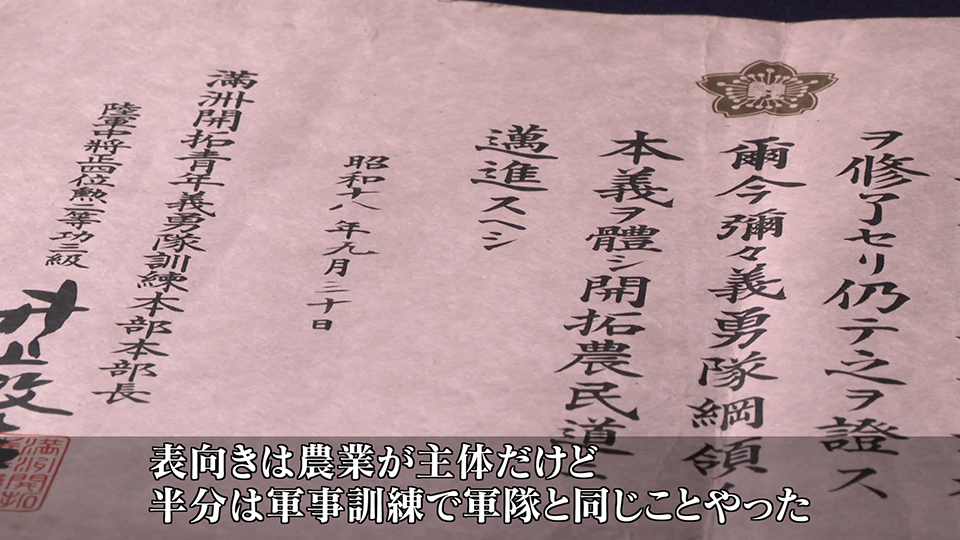 ヲ修了セリ仍テ之ヲ證ス
爾今彌々義勇隊綱領
本義ヲ體シ開拓農民道
邁進スヘシ
昭和十八年九月二十日
滿洲開拓青年義勇隊訓練本部本部長
陸軍中將正四位勲二等功三級
表向きは農業が主体だけど
半分は軍事訓練で軍隊と同じことやった